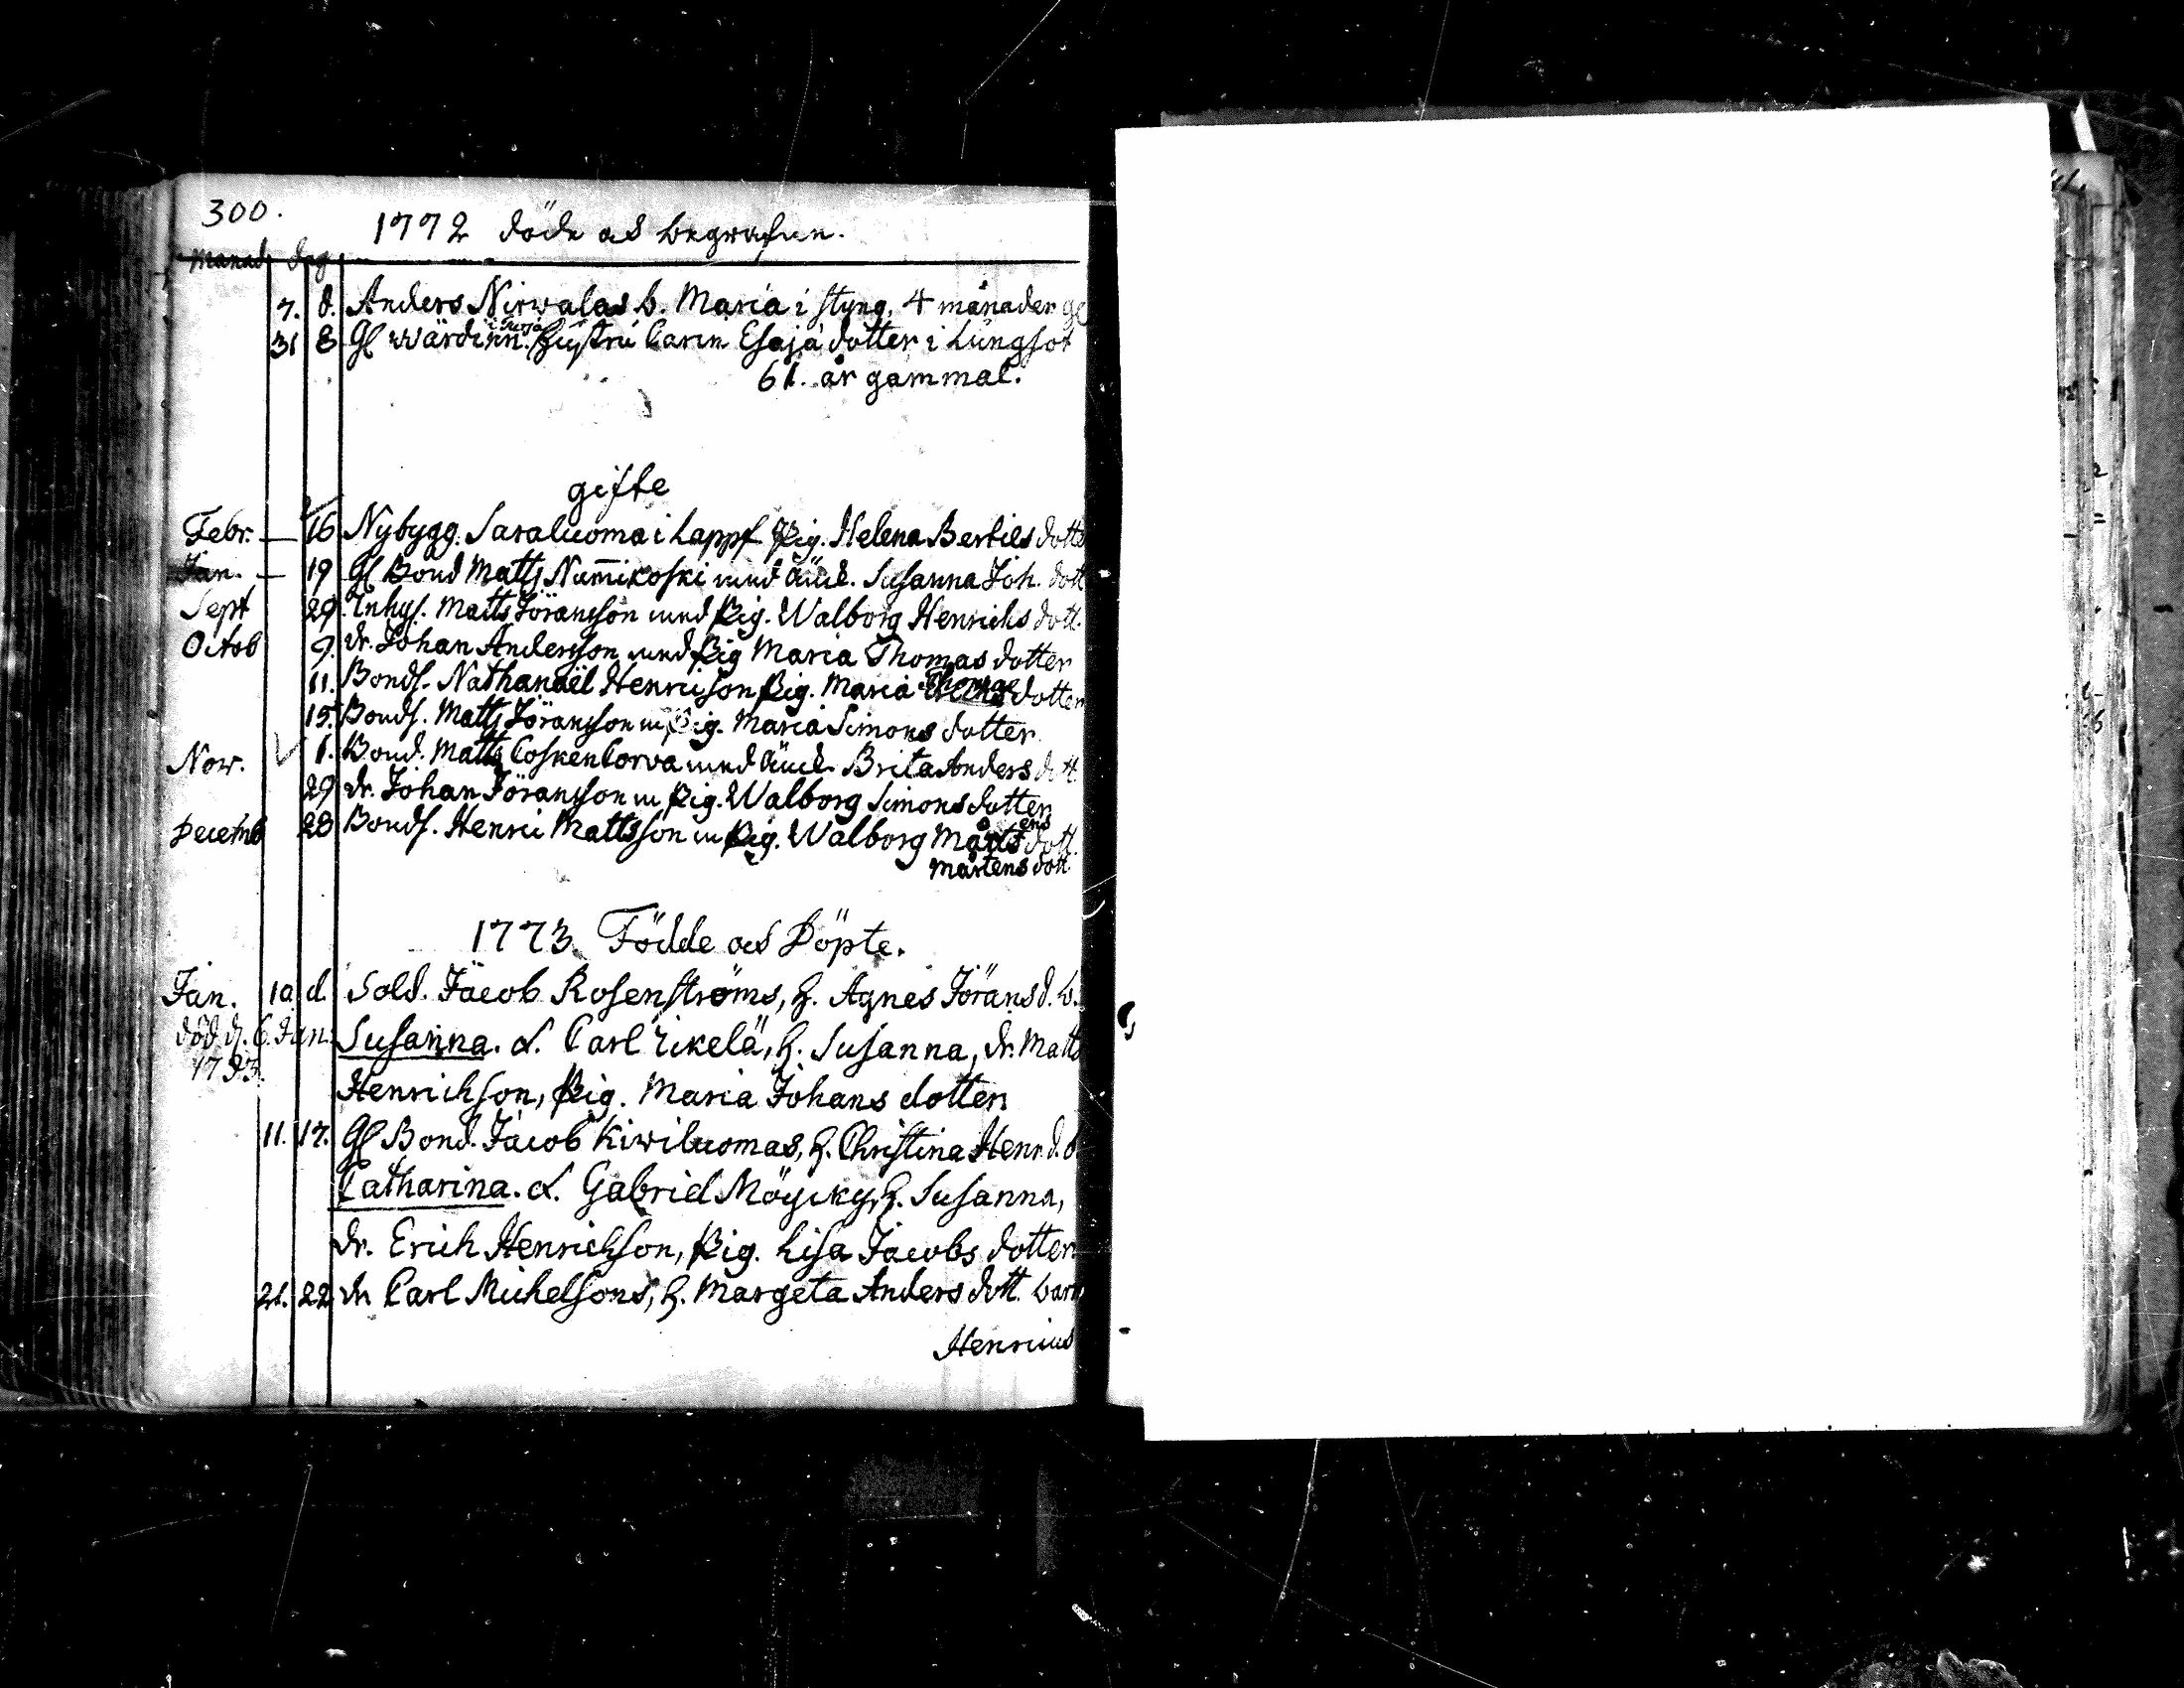 300.
1772 döde och begrafne.
Månad dag
7. 8. Anders Nirwalas b. Maria i styng, 4 månader
31 8 Gl wärdinn. Hustru Carin Esajædotter i Lungsot
61. år gammal.
gifte
Febr. — 16 Nybygg. Saraluoma i Lappf Pig. Helena Bertils dotte
Jan. — 19 Gl Bond Matts Num̄ikoski med änck. Susanna Joh. dott
Sept 29. Inhys. Matts Jöransson med Pig. Walborg Henrichs dott.
Octob 9. dr. Johan Andersson med Pig Maria Thomas dotter
11. Bonds. Nathanaël Henricson Pig. Maria Thomæ dotter
15. Bonds. Matts Jöransson m Pig. Maria Simons dotter
Nov. 1. Bond. Matts CoskenCorva med änck Brita Anders dott.
29 dr. Johan Jöransson m Pig. Walborg Simons dotter
Decemb 28 Bonds. Henric Mattsson m Pig. Walborg Mårtens dott.
Mårtens dott
1773. Födde och Döpte.
Jan. 10 d. Sold. Jacob Rosenströms, h. Agnes Jörans d. b.
död d. 6. Jan. Susanna. d. Carl Rikelä, h. Susanna, dr. Matts
Henrichson, Pig. Maria Johans dotter
11. 17. Gl Bond. Jacob Kiwiluomas, h. Christina Henr. d. b
Catharina. d. Gabriel Möycky, h. Susanna,
dr. Erich Henrichson, Pig. Lisa Jacobs dotter
21. 22 dr Carl Michelsons, h. Margeta Anders dott. barn
Henricus